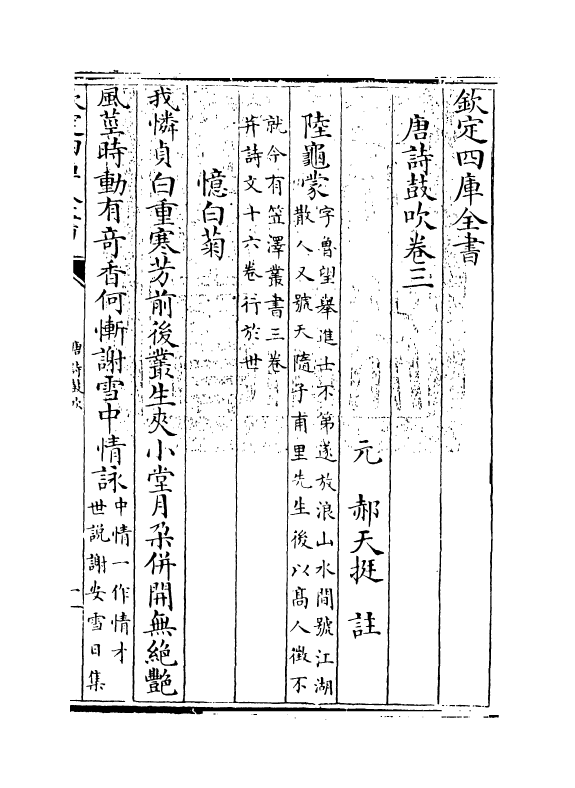 欽定四庫全書
唐詩鼓吹卷三
元 郝天挺 註
陸龜蒙字魯望舉進士不第遂放浪山水間號江湖
散人又號天隨子甫里先生後以髙人徵不
就今有笠澤叢書三卷
并詩文十六卷行於世
憶白菊
我憐貞白重寒芳前後叢生夾小堂月朶併開無絶艷
風莖時動有竒香何慚謝雪中情詠中情一作情才
世説謝安雪日集
唐詩鼓吹
一